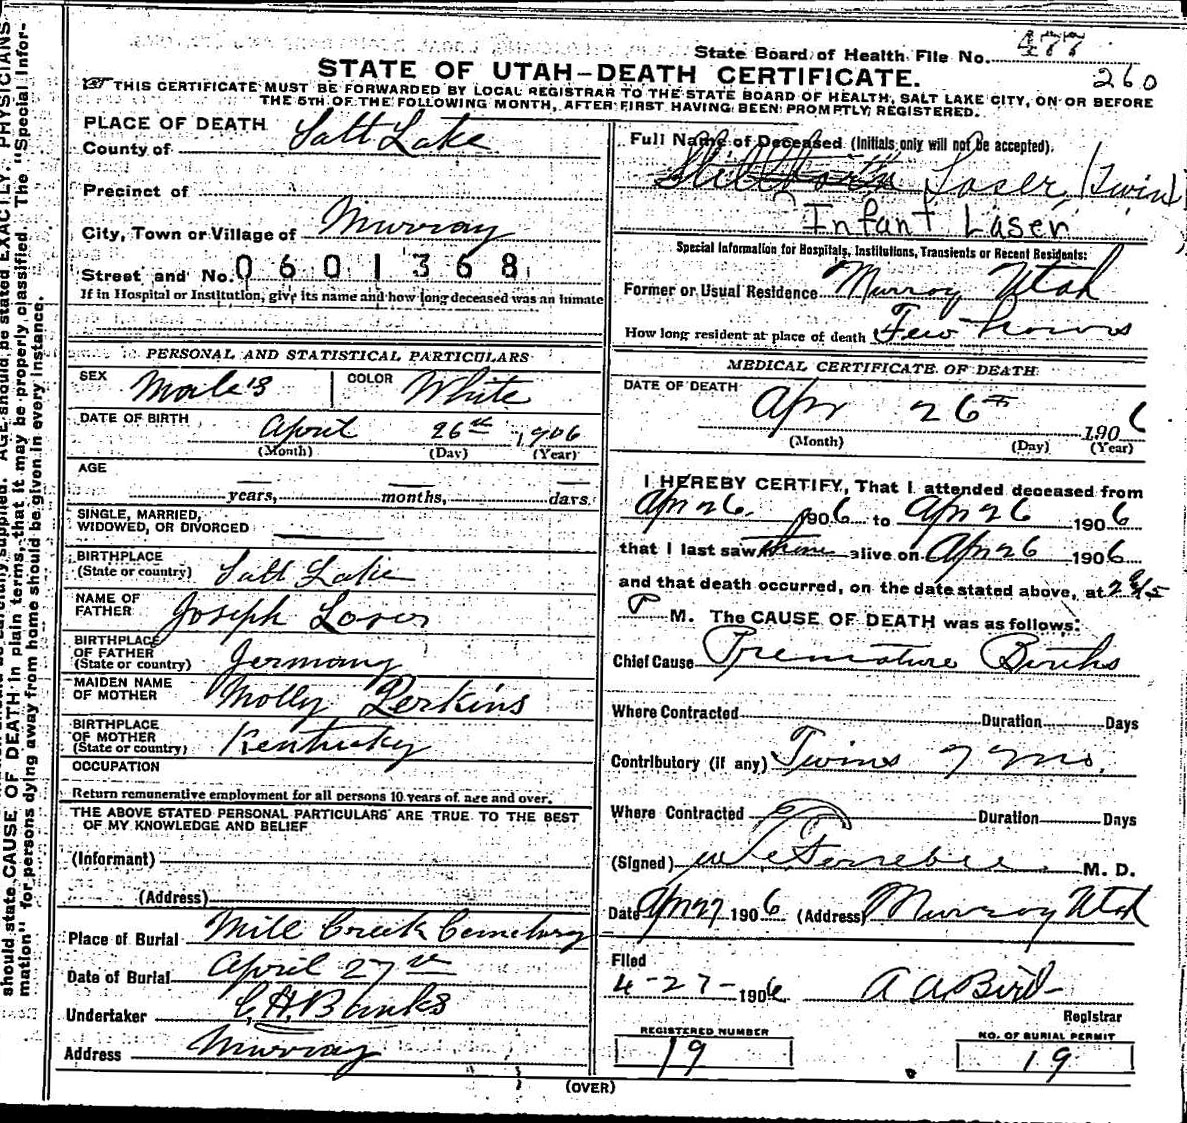 State Board of Health File No. 477
260
STATE OF UTAH—DEATH CERTIFICATE.
THIS CERTIFICATE MUST BE FORWARDED BY LOCAL REGISTRAR TO THE STATE BOARD OF HEALTH, SALT LAKE CITY, ON OR BEFORE
THE 5TH OF THE FOLLOWING MONTH, AFTER FIRST HAVING BEEN PROMPTLY REGISTERED.
PLACE OF DEATH
County of Salt Lake
Precinct of
City, Town or Village of Murray
Street and No. 0601368
If in Hospital or Institution, give its name and how long deceased was an inmate
PERSONAL AND STATISTICAL PARTICULARS
SEX Males COLOR White
DATE OF BIRTH April 26th, 1906
(Month) (Day) (Year)
AGE
years, months, days.
SINGLE, MARRIED,
WIDOWED, OR DIVORCED
BIRTHPLACE
(State or country) Salt Lake
NAME OF
FATHER Joseph
BIRTHPLACE
OF FATHER
(State or country) Germany
MAIDEN NAME
OF MOTHER Molly Perkins
BIRTHPLACE
OF MOTHER
(State or country) Kentucky
OCCUPATION
Return remunerative employment for all persons 10 years of age and over.
THE ABOVE STATED PERSONAL PARTICULARS ARE TRUE TO THE BEST
OF MY KNOWLEDGE AND BELIEF
(Informant)
(Address)
Place of Burial Mill Creek Cemetery
Date of Burial April 27th
Undertaker C. H. Banks
Address Murray
Full Name of Deceased (Initials only will not be accepted).
Stillborn Laser (Twin)
Infant Lasen
Special Information for Hospitals, Institutions, Transients or Recent Residents:
Former or Usual Residence Murray Utah
How long resident at place of death Few hours
MEDICAL CERTIFICATE OF DEATH
DATE OF DEATH Apr 26th 1906
(Month) (Day) (Year)
I HEREBY CERTIFY, That I attended deceased from
Apr 26. 1906 to Apr 26 1906
that I last saw them alive on Apr 26 1906.
and that death occurred, on the date stated above, at
P M. The CAUSE OF DEATH was as follows:
Chief Cause Premature Births
Where Contracted Duration Days
Contributory (if any) Twins 7 mo.
Where Contracted Duration Days
(Signed) M. D.
Date Apr 27 1906 (Address) Murray Utah
Filed
4-27-1906 A A Bird
Registrar
REGISTERED NUMBER
19
NO. OF BURIAL PERMIT
19
(OVER)